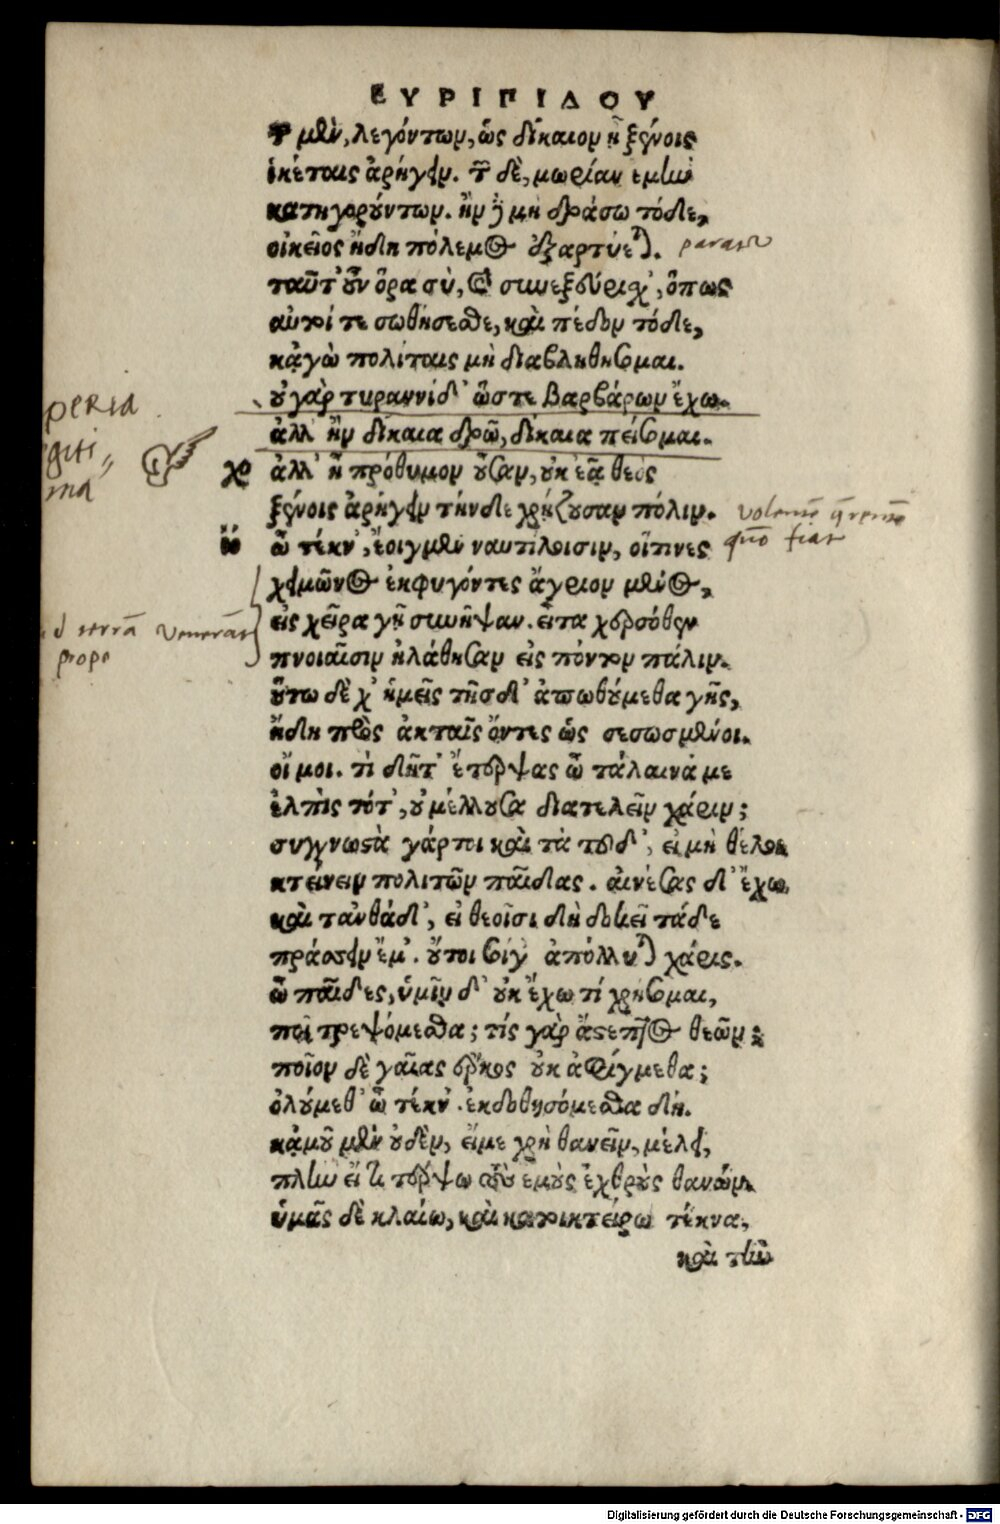 ΕΥΡΙΠΙΔΟΥ
τῶν μὲν, λεγόντων, ὡς δίκαιον ἦ ξένοις
ἱκέταις ἀρήγειν. τῶν δὲ, μωρίαν εμὴν
κατηγορούντων. ἢν δὲ μὴ δράσω τόδε,
οἰκεῖος ἤδη πόλεμος ἐξαρτύεται. paratur
ταῦτ' οὖν ὅρα σὺ, καὶ συνεξεύρισχ', ὅπως
αὐτοί τε σωθήσεσθε, καὶ πέδον τόδε,
κᾀγὼ πολίταις μὴ διαβληθήσομαι.
οὐ γὰρ τυραννίδ' ὥστε βαρβάρων ἔχω.
peria
ἀλλ' ἢν δίκαια δρῶ, δίκαια πείσομαι.
giti,,
ma
χο ἀλλ' ἦ πρόθυμον οὖσαν, οὐκ ἐᾷ θεὸς
ξένοις ἀρήγειν τήνδε χρῄζουσαν πόλιν.
quo fiat
ἰό ὦ τέκν', ἔοιγμεν ναυτίλοισιν, οἵτινες
χειμῶνος ἐκφυγόντες ἄγριον μένος,
εἰς χεῖρα γῇ συνῆψαν. εἶτα χερσόθεν
d terrā venerāt
prope
πνοιαῖσιν ἠλάθησαν εἰς πόντον πάλιν.
οὕτω δὲ χ' ἡμεῖς τῆσδ' ἀπωθούμεθα γῆς,
ἤδη πρὸς ἀκταῖς ὄντες ὡς σεσωσμένοι.
οἴ μοι. τί δῆτ' ἔτερψας ὦ τάλαινά με
ἐλπὶς τότ', οὐ μέλλουσα διατελεῖν χάριν;
συγγνωστὰ γάρ τοι καὶ τὰ τοῦδ', εἰ μὴ θέλοι
κτείνειν πολιτῶν παῖδας. αἰνέσας δ' ἔχω,
καὶ τἀνθάδ', εἰ θεοῖσι δὴ δοκεῖ τάδε
πράσσειν ἔμ'. οὔτοι σοίγ' ἀπόλλυται χάρις.
ὦ παῖδες, ὑμῖν δ' οὐκ ἔχω τί χρήσομαι,
ποῖ τρεψόμεσθα; τίς γὰρ ἄστεπτος θεῶν;
ποῖον δὲ γαίας ἕρκος οὐκ ἀφίγμεθα;
ὀλούμεθ' ὦ τέκν'. ἐκδοθησόμεσθα δή.
κᾀμοῦ μὲν οὐδὲν, εἴ με χρὴ θανεῖν, μέλει,
πλὴν εἴ τι τέρψω τοὺς εμοὺς ἐχθροὺς θανών.
ὑμᾶς δὲ κλαίω, καὶ κατοικτείρω τέκνα,
καὶ τὴν
Digitalisierung gefördert durch die Deutsche Forschungsgemeinschaft - DFG